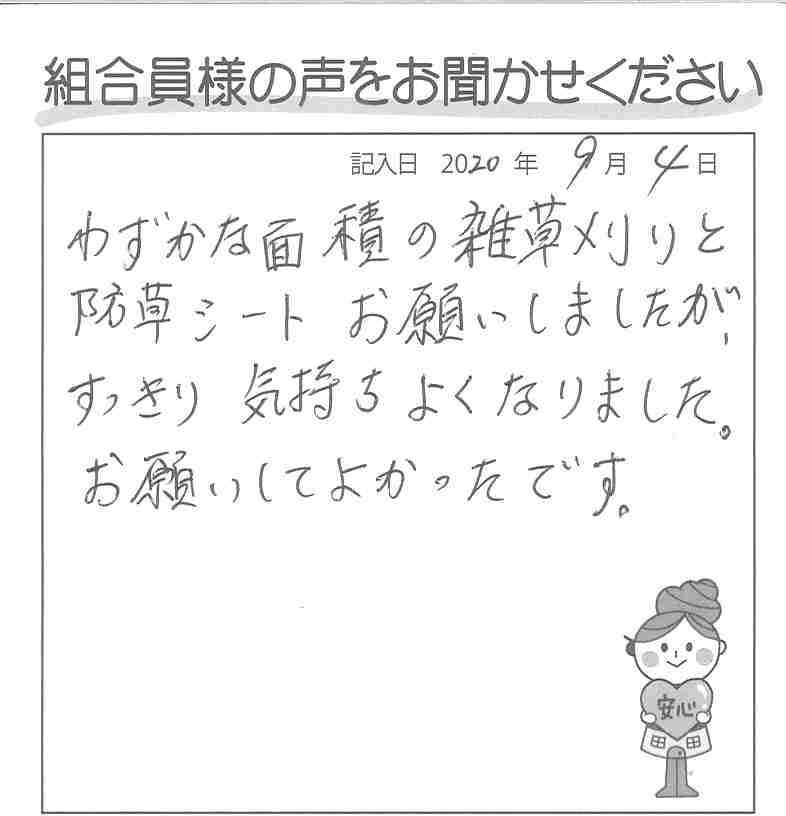 組合員様の声をお聞かせください
記入日 2020年 9月 4日
わずかな面積の雑草刈りと
防草シート お願いしましたが、
すっきり 気持ちよくなりました。
お願いしてよかったです。
安心